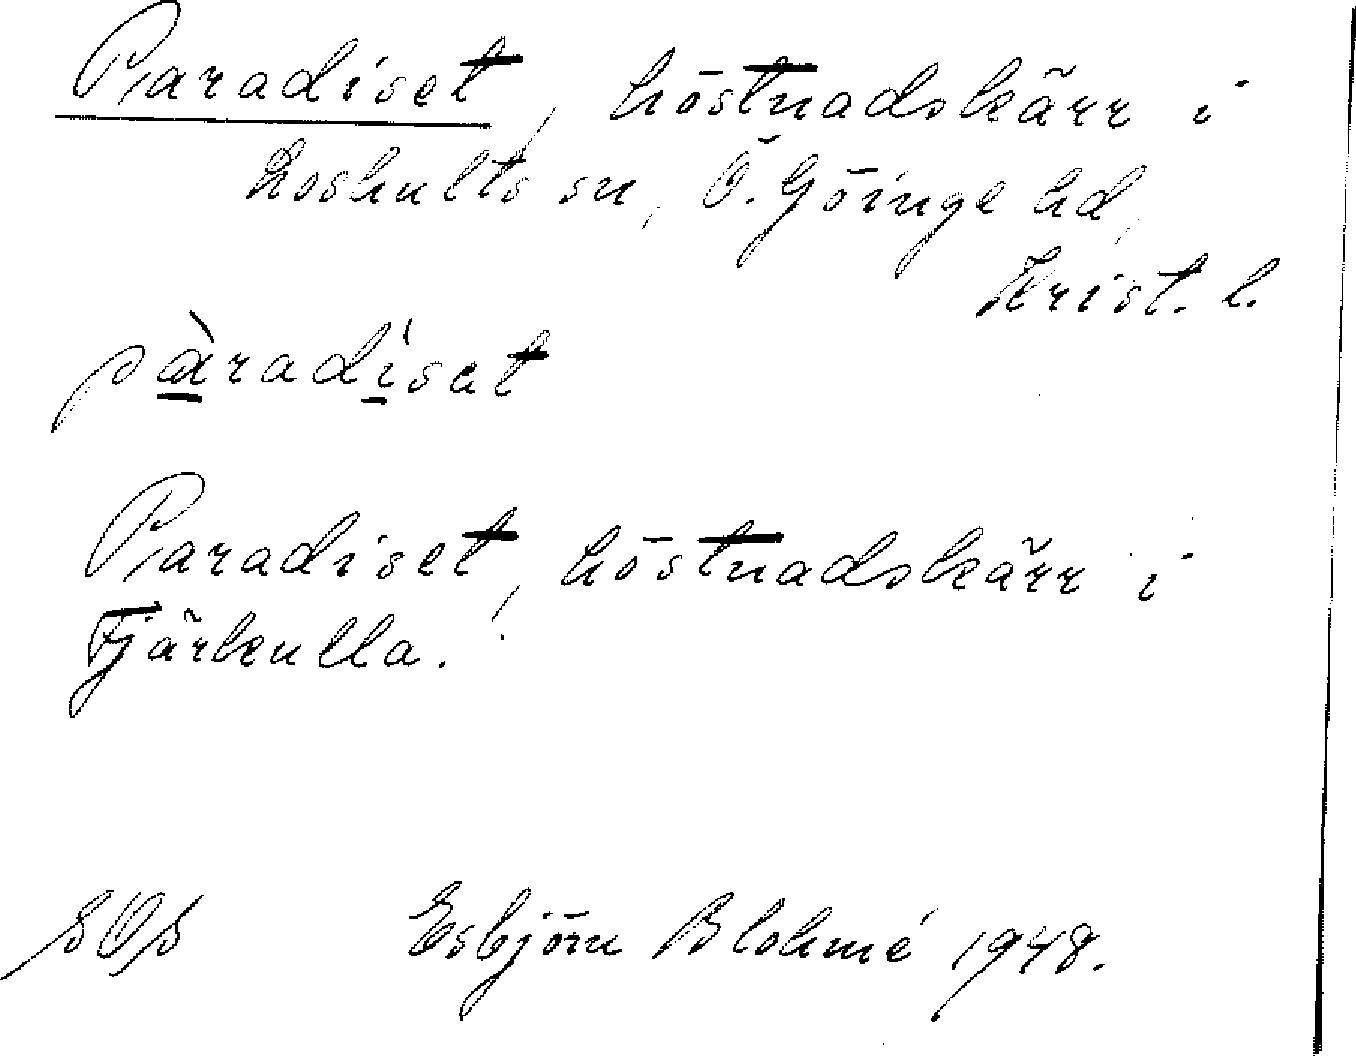 Paradiset, höstnadskärr i
Loshults sn, Ö. Göinge hd,
Krist. l.
pàradíset
Paradiset, höstnadskärr i
Tjärkulla.
SOS Esbjörn Blohmé 1948.